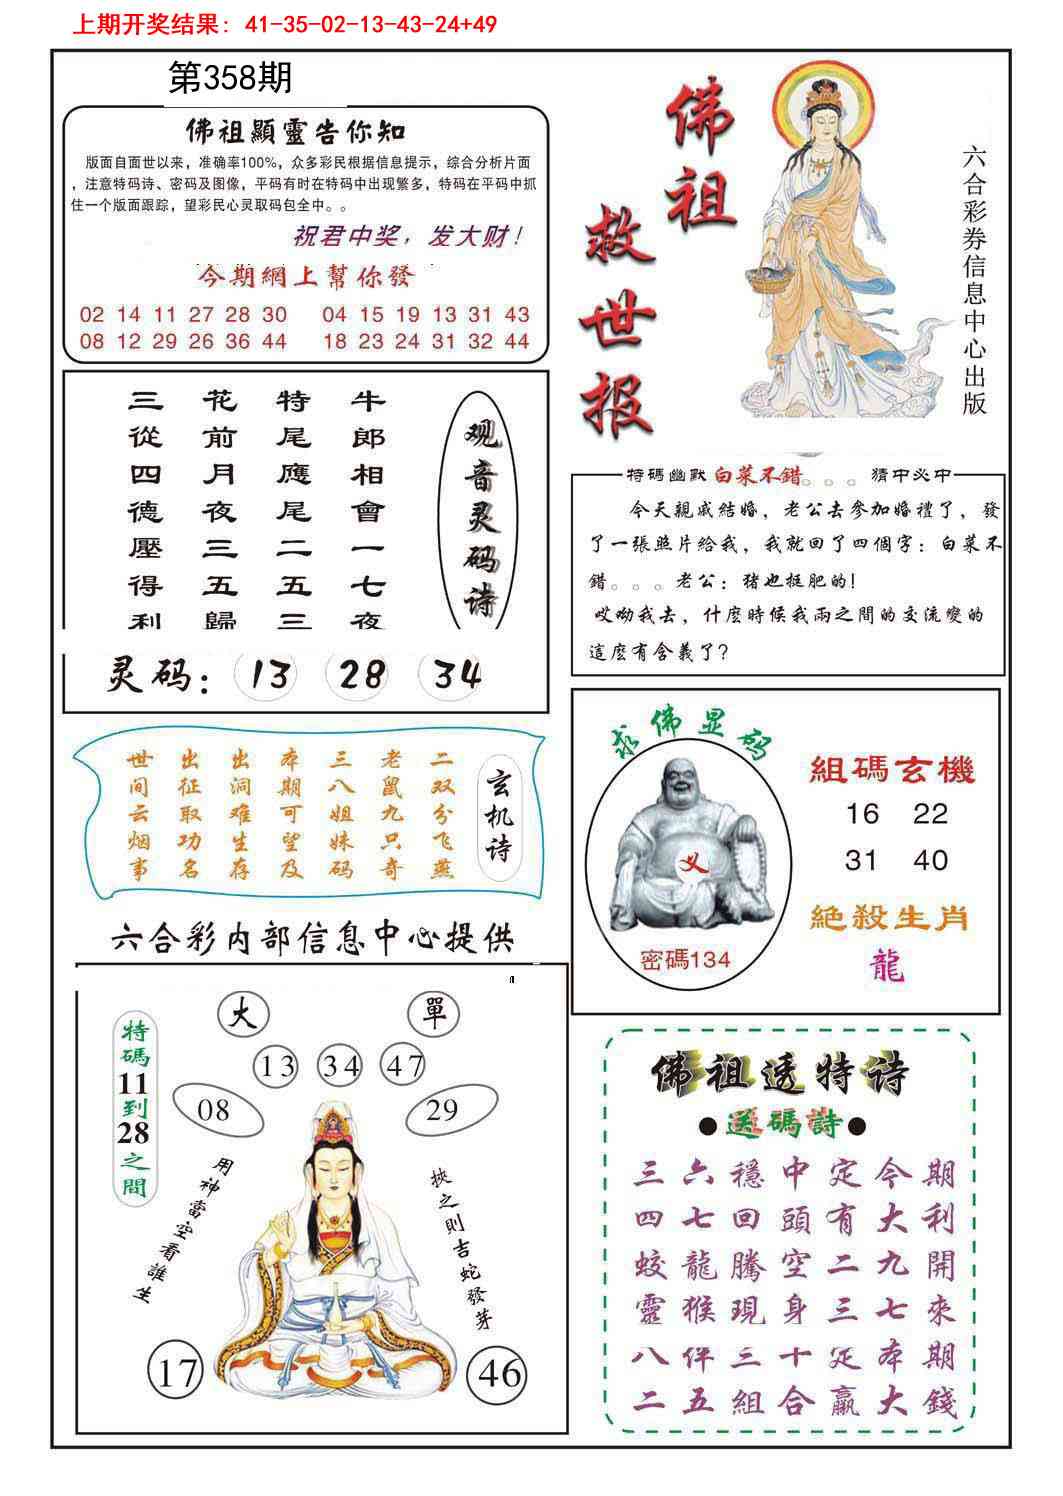 上期开奖结果: 41-35-02-13-43-24+49
第358期
佛祖顯靈告你知
版面自面世以来，准确率100%，众多彩民根据信息提示，综合分析片面
，注意特码诗、密码及图像，平码有时在特码中出现繁多，特码在平码中抓
住一个版面跟踪，望彩民心灵取码包全中。。
祝君中奖，发大财!
今期網上幫你發
02 14 11 27 28 30 04 15 19 13 31 43
08 12 29 26 36 44 18 23 24 31 32 44
佛祖
救世报
六合彩券信息中心出版
观音灵码诗
牛郎相會一七夜
特尾應尾二五三
花前月夜三五歸
三從四德壓得利
灵码: 13 28 34
特碼幽默 白菜不错。。。 猜中必中
今天親戚結婚，老公去參加婚禮了，發
了一張照片給我，我就回了四個字：白菜不
錯。。。老公：猪也挺肥的!
哎呦我去，什麼時候我兩之間的交流變的
這麼有含義了?
玄机诗
二双分飞燕
老鼠九只奇
三八姐妹码
本期可望及
出洞难生存
出征取功名
世间云烟事
求佛显码
义
密碼134
組碼玄機
16 22
31 40
絕殺生肖
龍
六合彩内部信息中心提供
特碼11到28之間
大 單
13 34 47
08 29
用神當空看誰生
挾之則吉蛇發芽
17 46
佛祖透特诗
●送碼詩●
三六穩中定今期
四七回頭有大利
蛟龍騰空二九開
靈猴現身三七來
八伴三十定本期
二五組合贏大錢